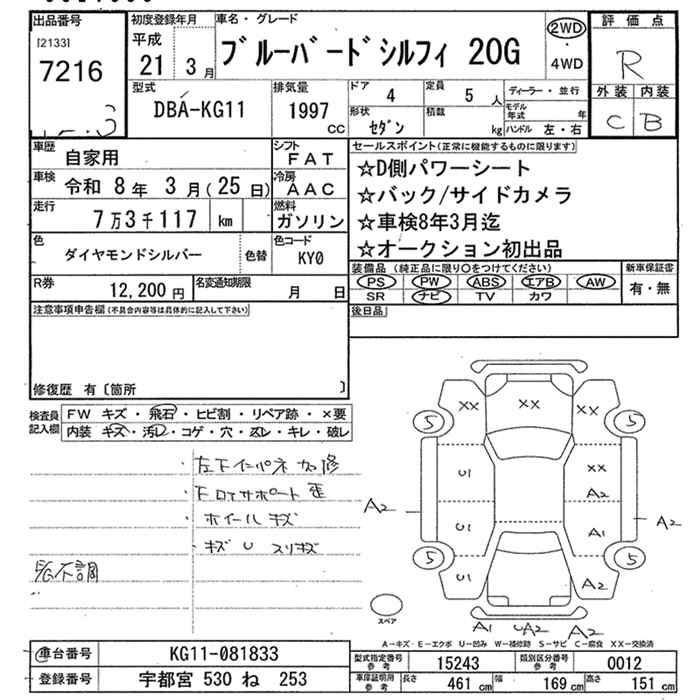 出品番号
[2133]
7216
初度登録年月
平成
21 3月
車名・グレード
ブルーバードシルフィ 20G
2WD
・
4WD
評価点
R
外装 内装
C B
型式
DBA-KG11
排気量
1997
CC
ドア
4
定員
5 人
形状
セダン
積載
kg
ディーラー・並行
モデル年式 年
ハンドル 左・右
車歴 自家用
シフト
FAT
車検 令和 8年 3月(25日)
冷房
AAC
走行 7万3千117 km
燃料
ガソリン
色 ダイヤモンドシルバー 色替
色コード
KY0
R券 12,200円
名変通知期限
月 日
セールスポイント(正常に機能するものに限ります)
☆D側パワーシート
☆バック/サイドカメラ
☆車検8年3月迄
☆オークション初出品
装備品(純正品に限り○をつけてください)
PS PW ABS エアB AW
SR ナビ TV カワ
新車保証書
有・無
後日品
注意事項申告欄(不具合内容等は具体的に記入して下さい)
修復歴 有〔箇所 〕
検査員
記入欄
FW キズ・飛石・ヒビ割・リペア跡・×要
内装 キズ・汚レ・コゲ・穴・スレ・キレ・破レ
・左下インパネ加修
・下回サポート歪
・ホイールキズ
・キズ U スリキズ
不調
XX XX XX
5 5
U1 XX
A2
A2 U1 A1 A2
5 5
U1 A2
スペア
A1 UA2 A2
A-キズ・E-エクボ U-凹み W-補修跡 S-サビ C-腐食 XX-交換済
車台番号 KG11-081833
登録番号 宇都宮 530 ね 253
型式指定番号
参考
15243
類別区分番号
参考
0012
車庫証明用
参考
長さ 461cm 幅 169cm 高さ 151cm